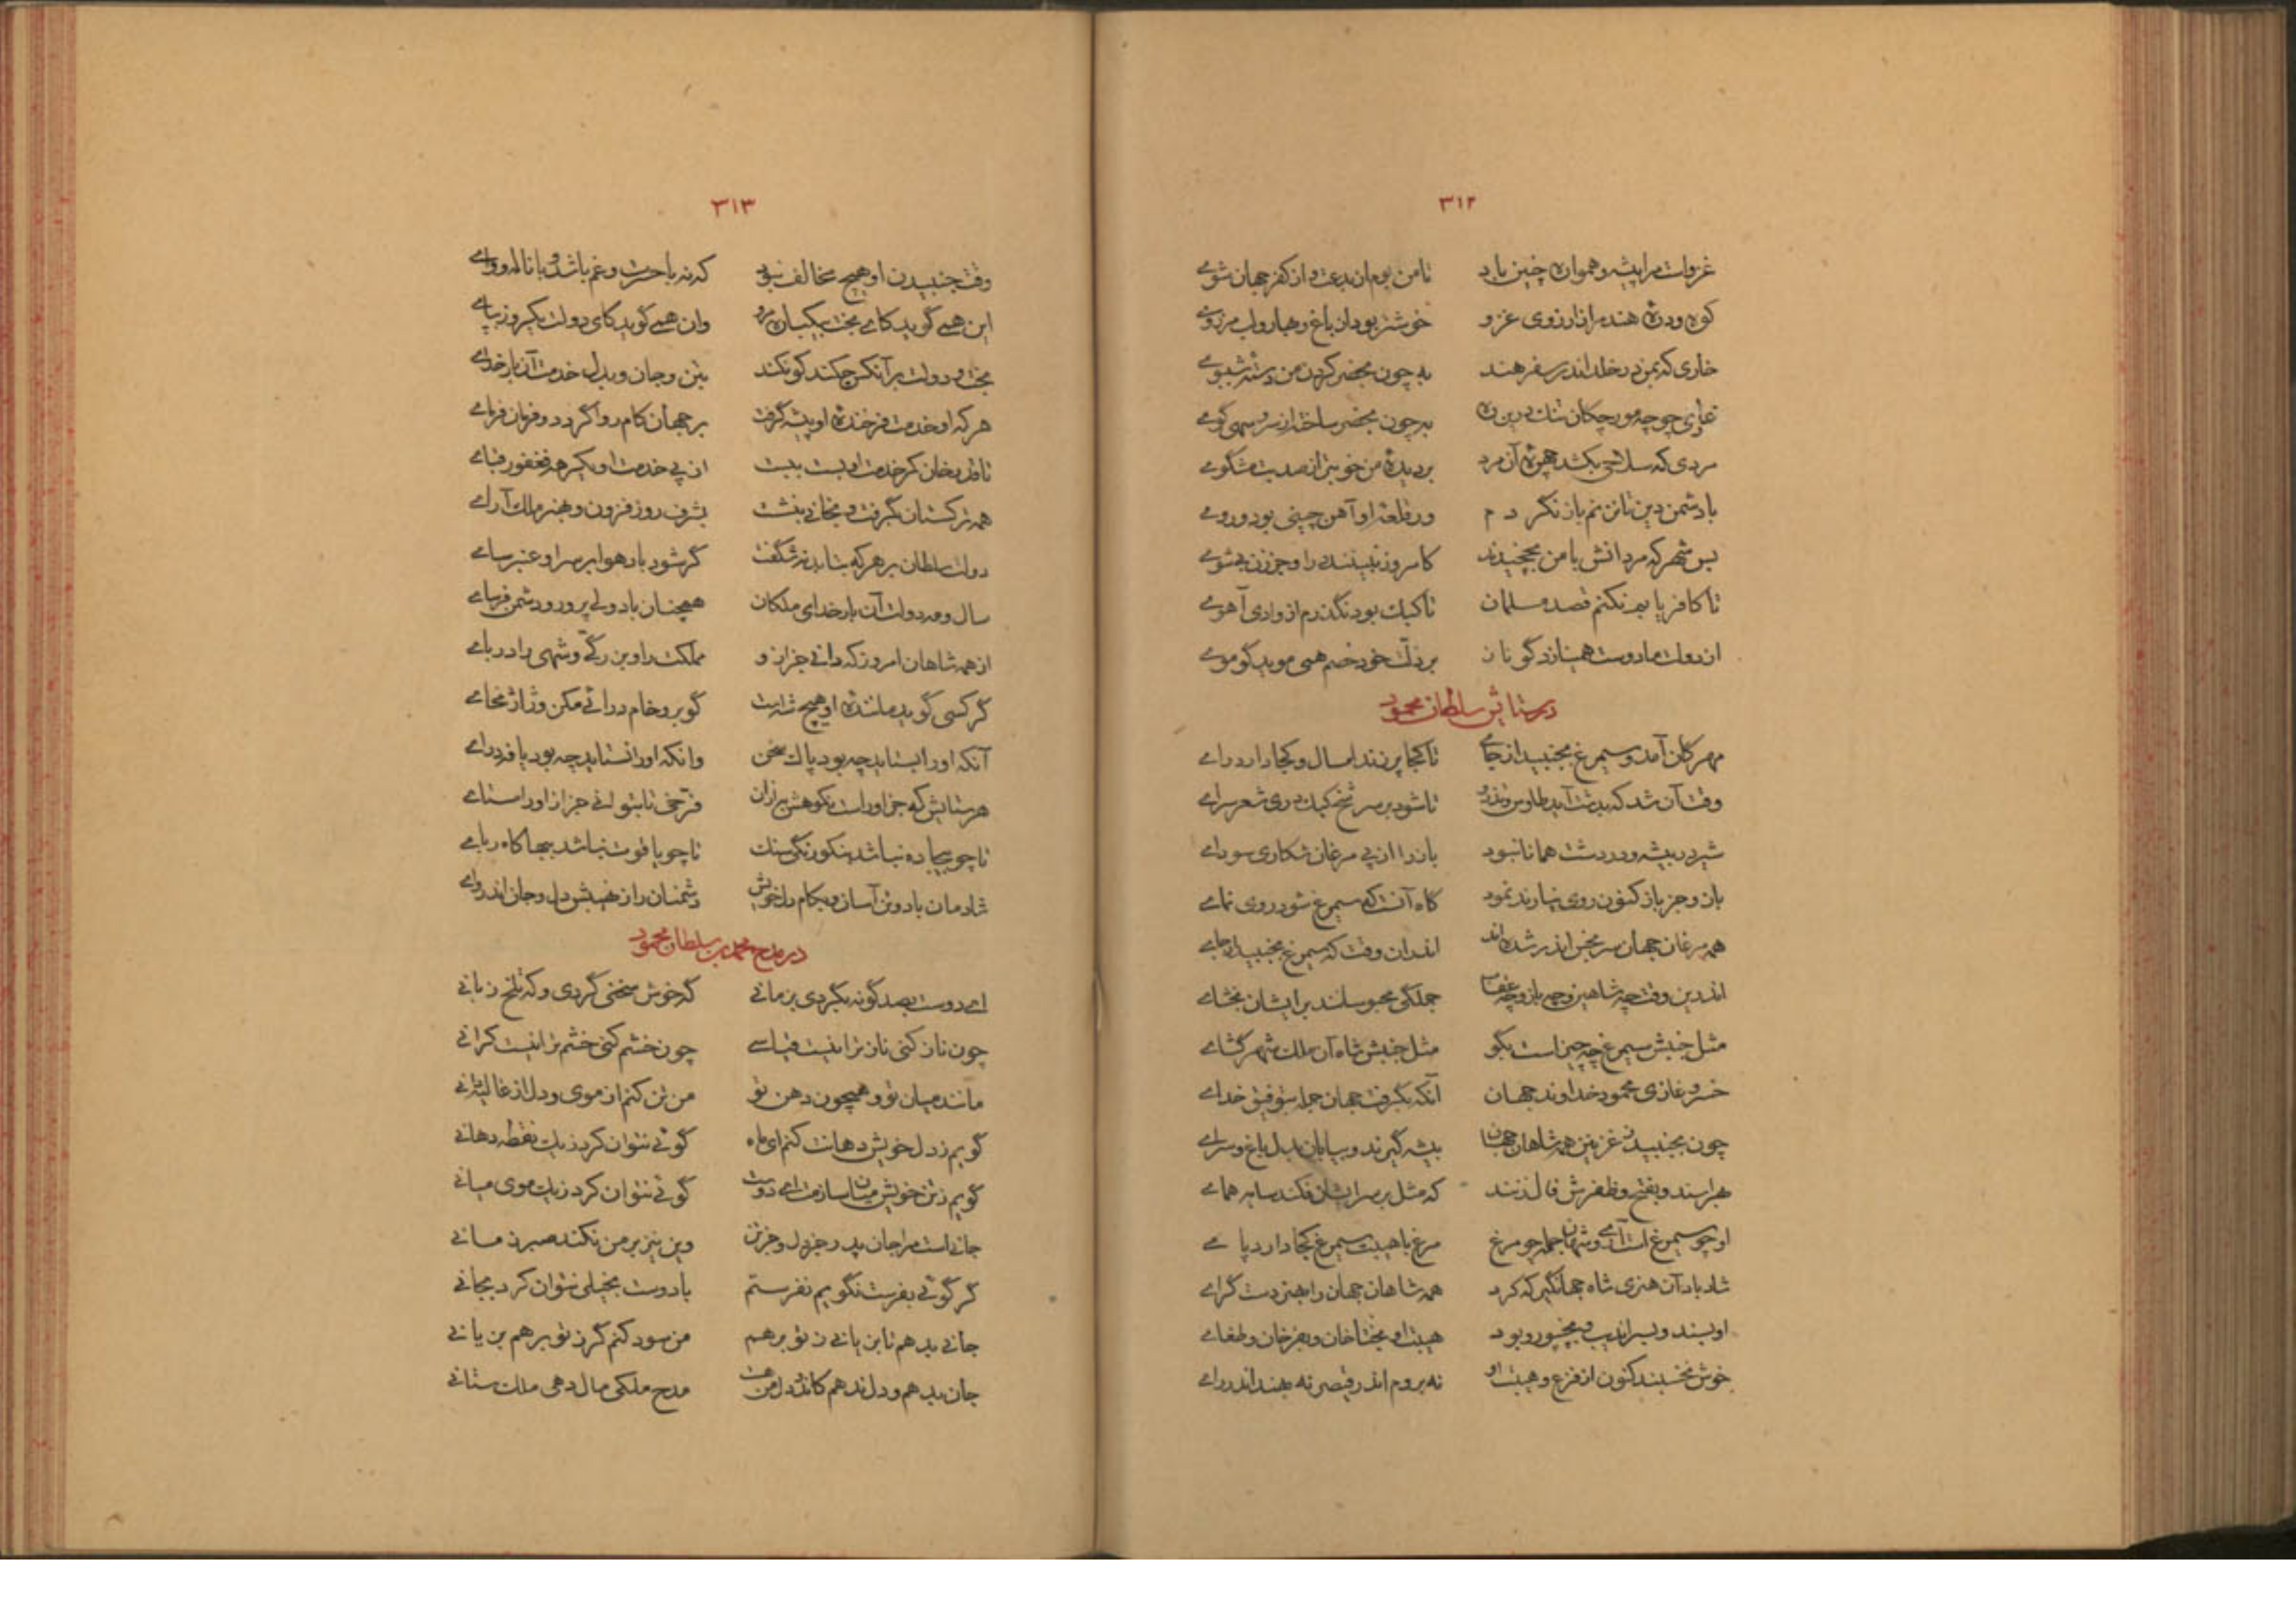 ۳۱۲
غزوات مرا پیشه و همواره چنین باد تا من بوم از بدعت و از کفر جهان شوی
کوه و دره هند مرا ز آرزوی غزو خوشتر بود از باغ و بهار و لب مرزوی
خاری که بمن درخلد اندر سفر هند به چون بحضر کردن من دسته شبوی
غاری چو چه مورچکان تنك درین ره به چون بحضر ساخته از سرو سهی کوی
مردی که سلاحی بکشد چهره آن مرد بر دیده من خوبتر از صد بت مشکوی
با دشمن دین تا نزنم باز نگردم ور قلعه او آهن چینی بود و روی
بس شهر که مردانش با من بچخیدند کامروز نبینند در او جز زن بیشوی
تا کافر یابم نکنم قصد مسلمان تا کبك بود نگذرم از وادی آهوی
از دولت ما دوست همی نازد گو ناز بر ذلت خود خصم همی موید گو موی
در ستایش سلطان محمود
مهرگان آمد و سیمرغ بجنبید از جای تا کجا پر زند امسال و کجا دارد رای
وقت آن شد که بدشت آید طاوس و تذرو تا شود بر سر شخ کبك دری شعر سرای
شیر در بیشه و در دشت همانا نبود باز را از پی مرغان شکاری سودای
باز و جز باز کنون روی نیارند نمود گاه آنست که سیمرغ شود روی نمای
همه مرغان جهان سر بخس اندر شده اند اندران وقت که سیمرغ بجنبید از جای
اندرین وقت چه شاهین و چه باز و چه عقاب جملگی محبوسند بر ایشان بخشای
مثل جنبش سیمرغ چه چیز است بگو مثل جنبش شاه آن ملك شهر گشای
خسرو غازی محمود خداوند جهان آنکه بگرفت جهان جمله بتوفیق خدای
چون بجنبید ز غزنین همه شاهان جهان بیشه گیرند و بیابان بدل باغ و سرای
بهراسند و بفتح و ظفرش فال زنند که مثل بر سر ایشان فکند سایه همای
او چو سیمرغ است آری و شهان جمله چو مرغ مرغ با هیبت سیمرغ کجا دارد پای
شاد باد آن هنری شاه جهانگیر که کرد همه شاهان جهان را بهنر دست گرای
او بسند و بسراندیب و بجیپور و بود هیبت او بختاخان و بغزخان و طغای
خوش نخسبند کنون از فزع و هیبت او نه بروم اندر قیصر نه بهند اندر رای
۳۱۳
وقت جنبیدن او هیچ مخالف نبود که نه با حسرت و غم باشد و با ناله و وای
این همی گوید کای بخت بیکبار مرو وان همی گوید کای دولت یکروز بپای
بخت و دولت بر آنکس چکند کو نکند بتن و جان و بدل خدمت آن بار خدای
هر که او خدمت فرخنده او پیشه گرفت بر جهان کام روا گردد و فرمان فرمای
تا قدر خان کمر خدمت او بست ببست از پی خدمت او بر همه فغفور قبای
همه ترکستان بگرفت و بخانی بنشست بشرف روز فزون و بهنر ملك آرای
دولت سلطان بر هر که بتابد نه شگفت گر شود باد هوا بر سر او عنبر سای
سال و مه دولت آن بار خدای ملکان همچنان باد ولی پرور و دشمن فرسای
از همه شاهان امروز که دانی جز او مملکت را و بزرگی و شهی را دربای
گر کسی گوید ماننده او هیچ شه است گو برو خام درائی مکن و ژاژ مخای
آنکه او را بستاید چه بود پاك سخن وانکه او را نستاید چه بود یافه درای
هر ستایش که جز او راست نکوهش بر از آن فرخی تا بتوانی جز از او را مستای
تا چو بیجاده نباشد بنکو رنگی سنگ تا چو یاقوت نباشد ببها کاه ربای
شادمان باد و تن آسان و بکام دل خویش دشمنان را ز نهیبش دل و جان اندر وای
در مدح محمد بن سلطان محمود
ای دوست بصد گونه بگردی بزمانی گه خوش سخنی گردی و گه تلخ زبانی
چون ناز کنی ناز ترا نیست قیاسی چون خشم کنی خشم ترا نیست کرانی
مانند میان تو و همچون دهن تو من تن کنم از موی و دل از غالیه دانی
گویم ز دل خویش دهانت کنم ای ماه گوئی نتوان کرد ز یك نقطه دهانی
گویم ز تن خویش میان سازمت ای دوست گوئی نتوان کرد ز یك موی میانی
جانی است مرا جان پدر جز دل و جز تن وین نیز بر من نکند صبر زمانی
گر گوئی بفرست نگویم نفرستم با دوست بخیلی نتوان کرد بجانی
جانی بدهم تا بزیانی ز تو برهم من سود کنم گر ز تو برهم بزیانی
جان بدهم و دل ندهم کاندر دل من هست مدح ملکی مال دهی ملك ستانی